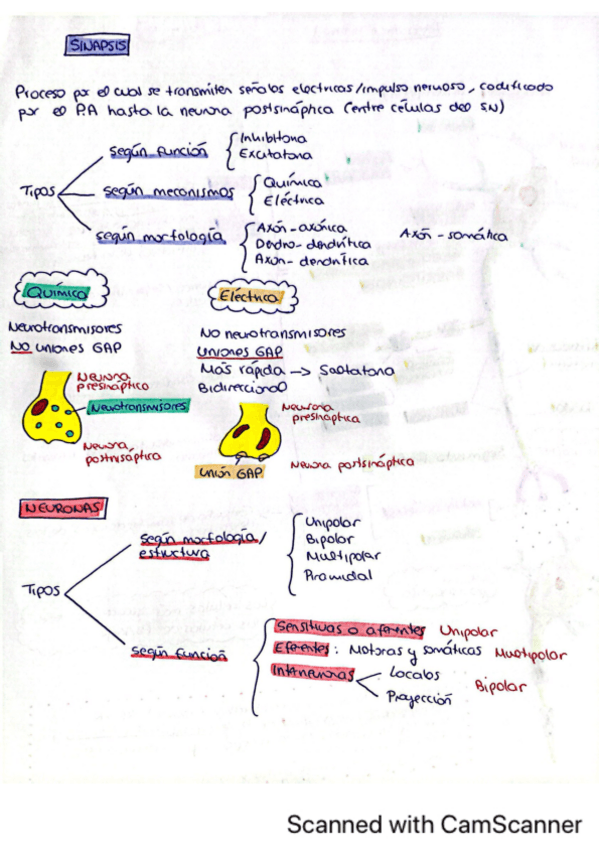 SINAPSIS
Proceso por el cual se transmiten señales electricas/impulso nervioso, codificado
por el P.A hasta la neurona postsináptica (entre células del SN)
Tipos
según función
Inhibitoria
Excitatoria
según mecanismos
Química
Eléctrica
según morfología
Axón-axónica
Dendro-dendrítica
Axon-dendrítica
Axón-somática
Química
Neurotransmisores
NO uniones GAP
Neurona
presináptica
Neurotransmisores
Neurona
postnisáptica
Eléctrica
NO neurotransmisores
Uniones GAP
Más rápida → Saltatoria
Bidireccional
Neurona
presináptica
unión GAP
Neurona postsináptica
NEURONAS
Tipos
según morfología/
estructura
Unipolar
Bipolar
Multipolar
Piramidal
según función
Sensitivas o aferentes Unipolar
Eferentes: Motoras y somáticas Multipolar
Interneuronas
Locales
Proyección
Bipolar
Scanned with CamScanner